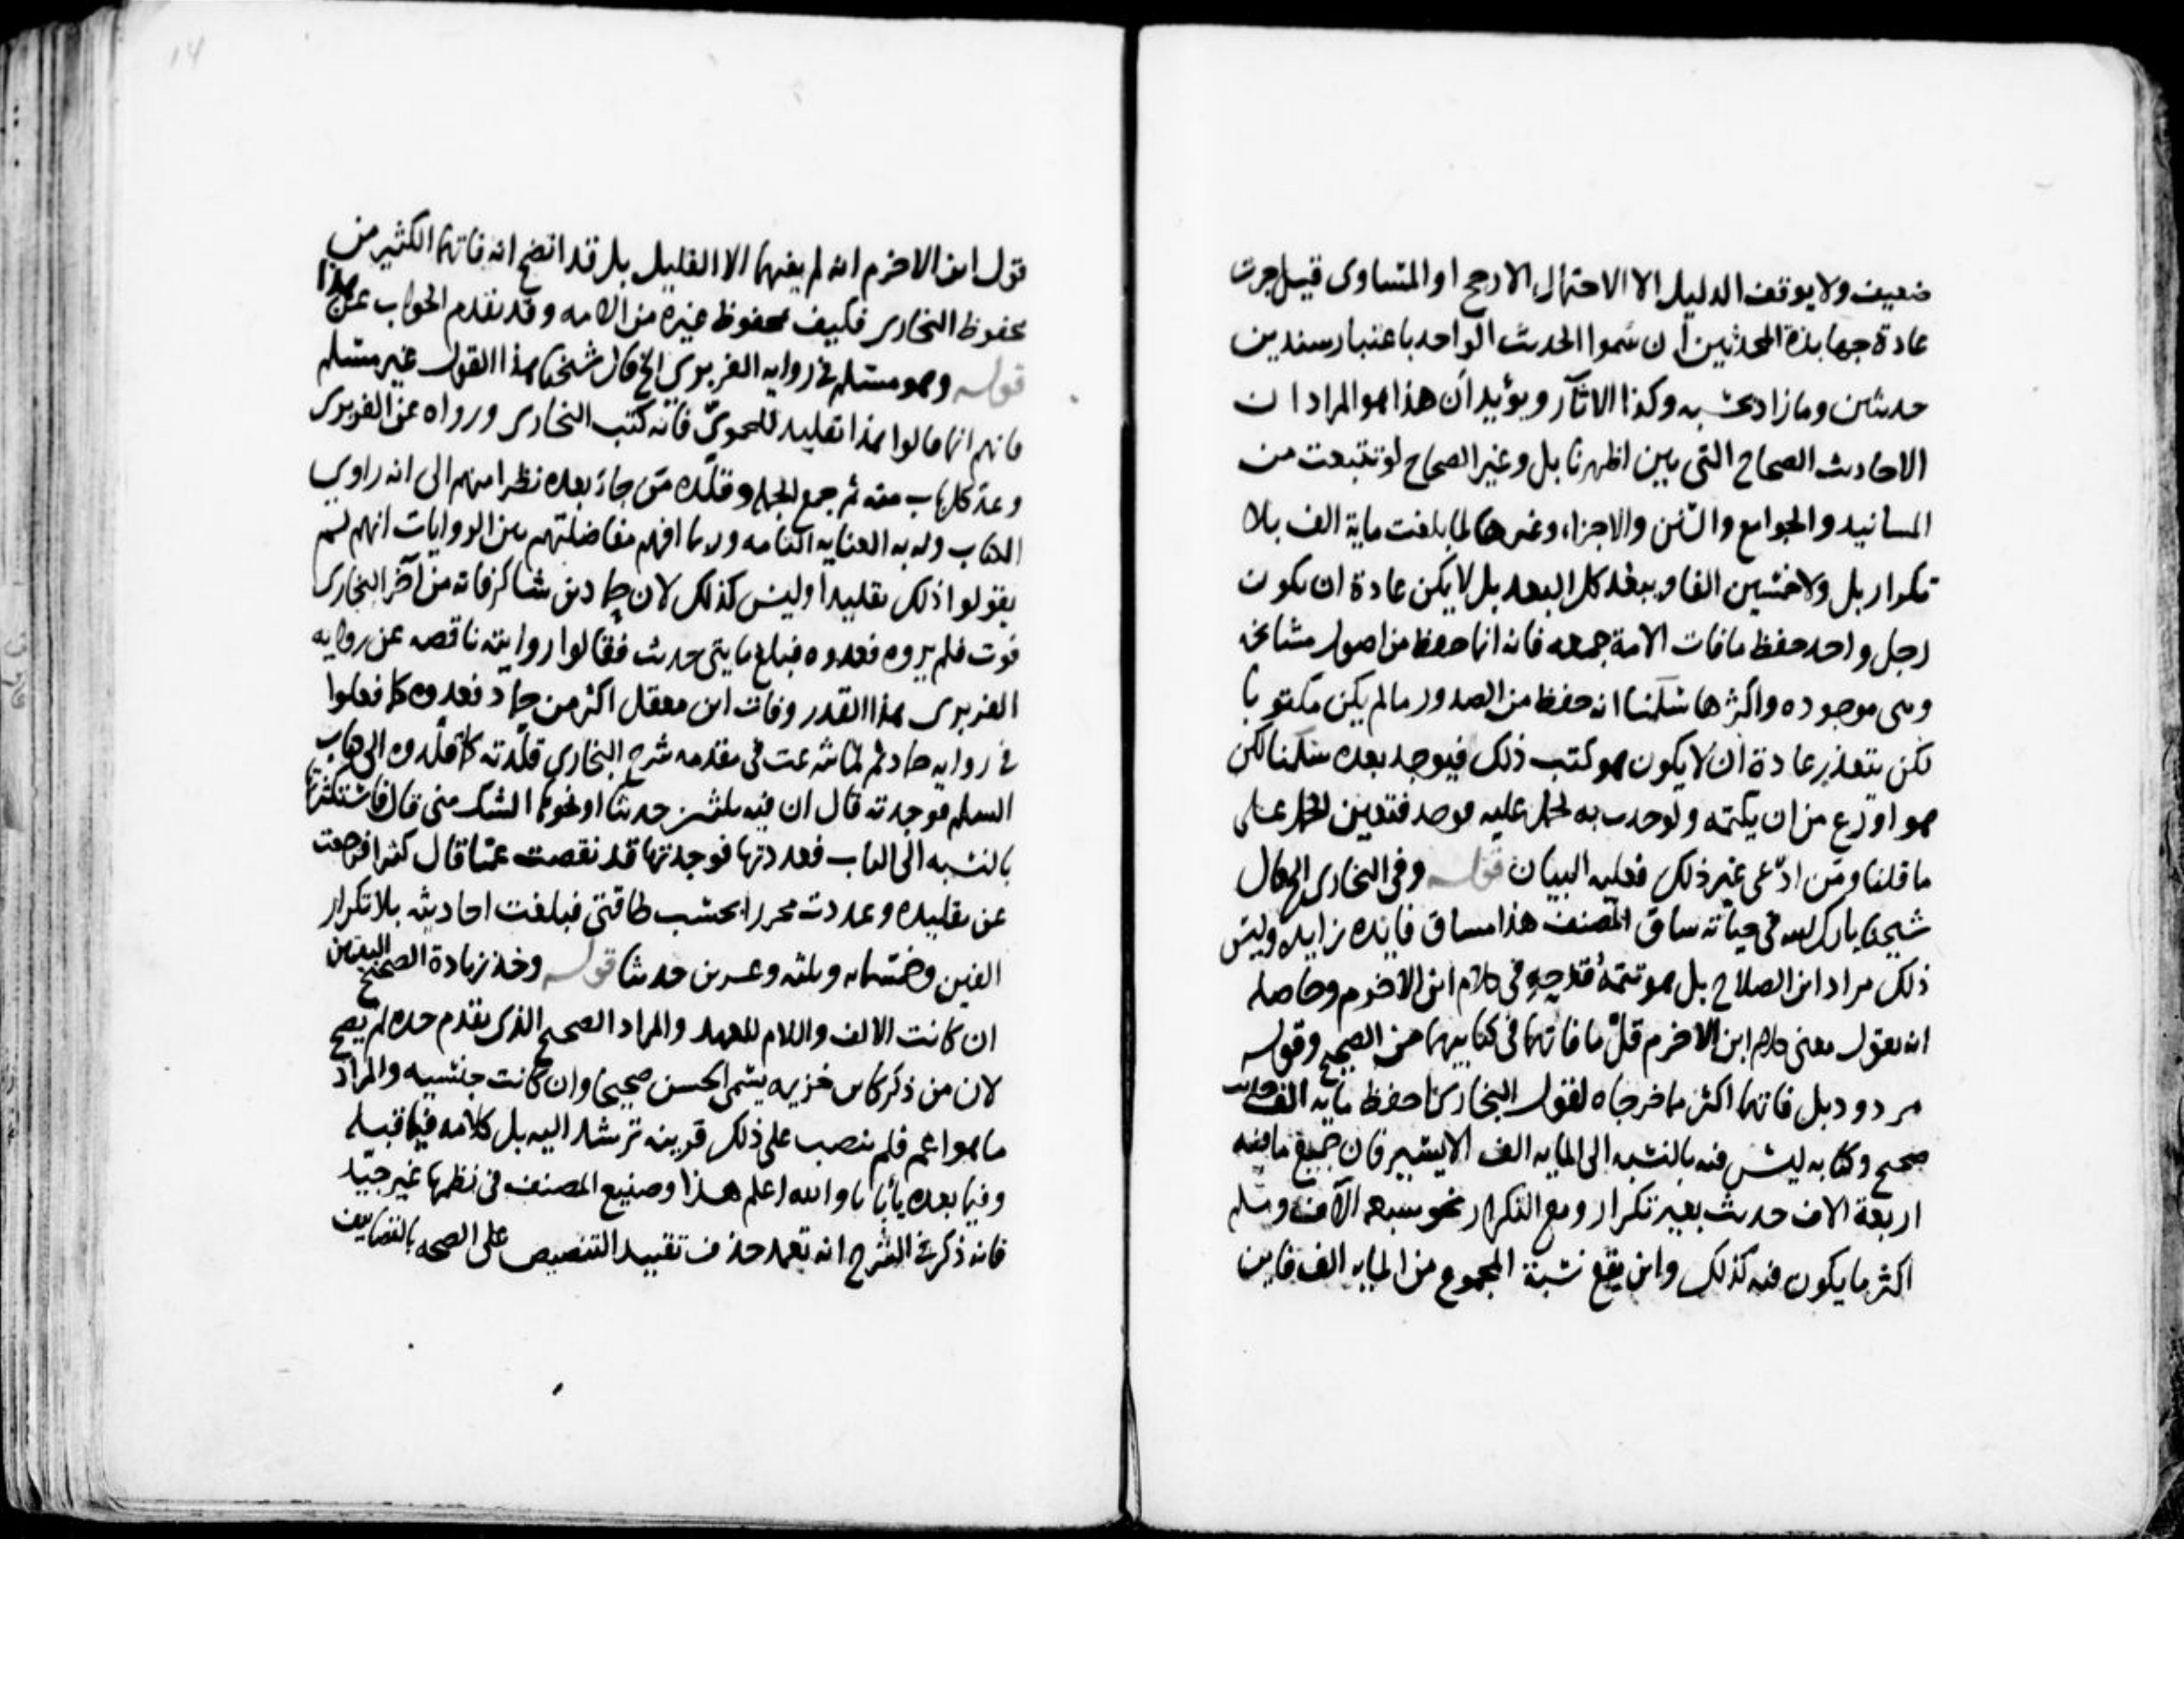 ضعيف ولا يوقف الدليل الا الاحتمال الارجح او المتساوى قيل جرت
عادة جهابذة المحدثين أن سموا الحديث الواحد باعتبار سندين
حديثين وما زاد بحسبه وكذا الاثار ويؤيد أن هذا هو المراد ان
الاحاديث الصحاح التى بين اظهرنا بل وغير الصحاح لو تتبعت من
المسانيد والجوامع والسنن والاجزاء وغيرها لما بلغت ماية الف بلا
تكرار بل ولا خمسين الفا ويبعد كل البعد بل لا يمكن عادة ان يكون
رجل واحد حفظ ما فات الامة جميعه فانه انما حفظ من اصول مشائخه
وهى موجوده واكثرها سلمنا انه حفظ من الصدور ما لم يكن مكتوبا
لكن يتعذر عادة أن لا يكون هو كتب ذلك فيوجد بعده سلمنا لكن
هو اورع من ان يكتمه ولو حدث به لحمل عليه فوجد فتعين الحمل على
ما قلنا ومن ادّعى غير ذلك فعليه البيان قوله وفى البخارى الخ قال
شيخنا بارك الله فى حياته ساق المصنف هذا مساق فايده زايده وليس
ذلك مراد ابن الصلاح بل هو تتمة قدحه فى كلام ابن الاخرم وحاصله
انه يقول معنى كلام ابن الاخرم قلّ ما فاتهما فى كتابيهما من الصحيح وقوله
مردود بل فاتهما اكثر مما خرجاه لقول البخارى احفظ ماية الف حديث
صحيح وكتابه ليس فيه بالنسبه الى الماية الف الا اليسير فان جميع ما فيه
اربعة الاف حديث بغير تكرار ومع التكرار نحو سبعه آلاف ومسلم
اكثر ما يكون فيه كذلك واين يقع نسبة المجموع من الماية الف فاين
قول ابن الاخرم انه لم يفتهما الا القليل بل قد اتضح انه فاتهما الكثير من
محفوظ البخارى فكيف بمحفوظ غيره من الامه وقد تقدم الجواب عن هذا
قوله وهو مسلم فى رواية الفربرى الخ قال شيخنا هذا القول غير مسلم
فانهم انما قالوا هذا تقليد للحمويّ فانه كتب البخارى ورواه عن الفربرى
وعد كل باب منه ثم جمع الجملة وقلّده من جاء بعده نظرا منهم الى انه راوي
الكتاب وله به العناية التامه ولا افهم مفاضلتهم بين الروايات انهم لم
يقولوا ذلك تقليدا وليس كذلك لان حماد بن شاكر فاته من آخر البخارى
فوت فلم يروه فعدوه فبلغ مايتى حديث فقالوا روايته ناقصه عن رواية
الفربرى هذا القدر وفات ابن معقل اكثر من حماد فعدوه كما فعلوا
فى رواية حماد ثم لما شرعت فى مقدمه شرح البخاري قلّدته كما قلّدوه الى كتاب
السلم فوجدته قال ان فيه ثلثين حديثا او نحوها الشك منى قال فاستكثرتها
بالنسبه الى الباب فعددتها فوجدتها قد نقصت عمّا قال كثيرا فرجعت
عن تقليده وعددت محررا بحسب طاقتى فبلغت احاديثه بلا تكرار
الفين وخمسمايه وثلثه وعشرين حديثا قوله وخذ زيادة الصحيح البيتين
ان كانت الالف واللام للعهد والمراد الصحيح الذى تقدم حده لم يصح
لان من ذكر كابن خزيمه يسمى الحسن صحيحا وان كانت جنسيه والمراد
ما هو اعم فلم ينصب على ذلك قرينه ترشد اليه بل كلامه فيما قبله
وفيما بعده يأباها والله اعلم هذا وصنيع المصنف فى نظمها غير جيّد
فانه ذكر فى الشرح انه تعمد حذف تقييد التنصيص على الصحه بالتصانيف